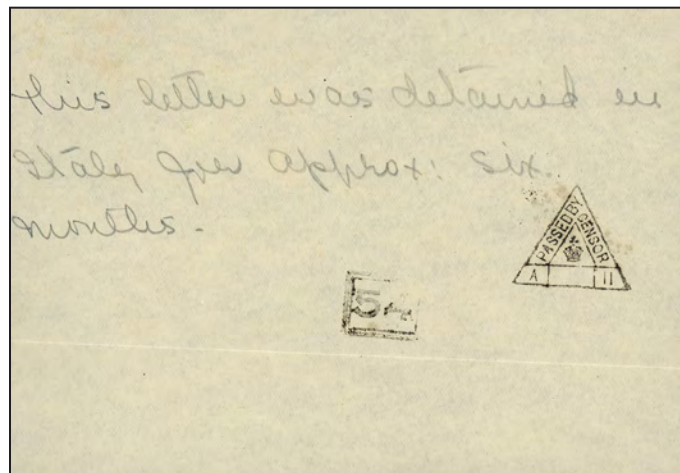 this letter was detained in
Italy for approx: six
months.
PASSED BY
CENSOR
A 11
54